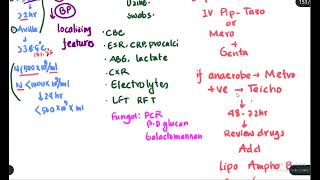 > 1 hr
Axilla
> 38.5°C
N < 500 × 10⁶/ml
N < 1000 × 10⁶/ml
↓ 24 hr
< 500 × 10⁶/ml
↓ BP
localizing
features
swabs
• CBC
• ESR, CRP, procalci
• ABG, lactate
• CXR
• Electrolytes
• LFT RFT
Fungal: PCR
β-D glucan
Galactomannan
IV Pip-Tazo
or
Mero
+
Genta
if anaerobe → Metro
+VE → Teicho
48-72hr
Review drugs
Add
Lipo Ampho B